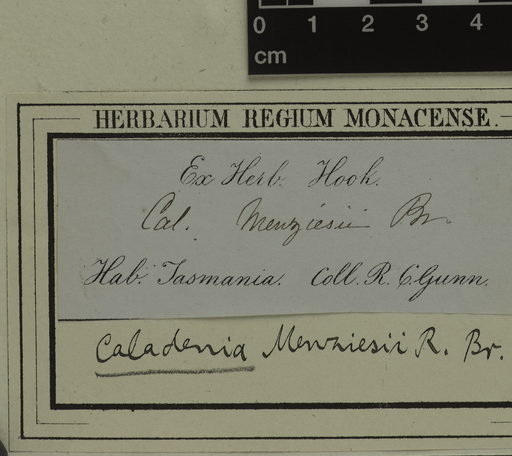 0 1 2 3 4
cm
HERBARIUM REGIUM MONACENSE.
Ex Herb. Hook.
Cal. Menziesii Br.
Hab. Tasmania. Coll. R. C. Gunn.
Caladenia Menziesii R. Br.